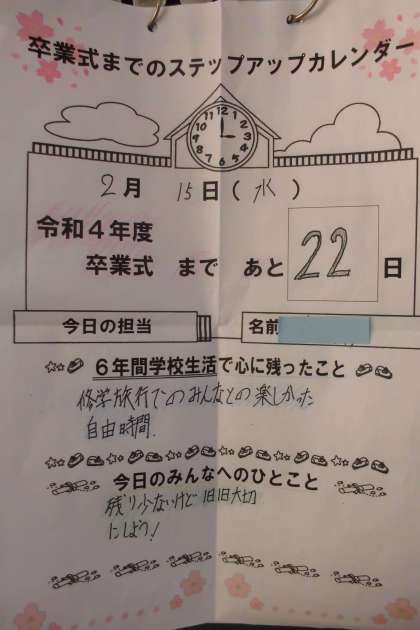 卒業式までのステップアップカレンダー
12
1
2
3
4
5
6
7
8
9
10
11
2月 15日(水)
令和4年度
卒業式 まで あと 22 日
今日の担当
名前
6年間学校生活で心に残ったこと
修学旅行でのみんなとの楽しかった
自由時間.
今日のみんなへのひとこと
残り少ないけど1日1日大切
にしよう!